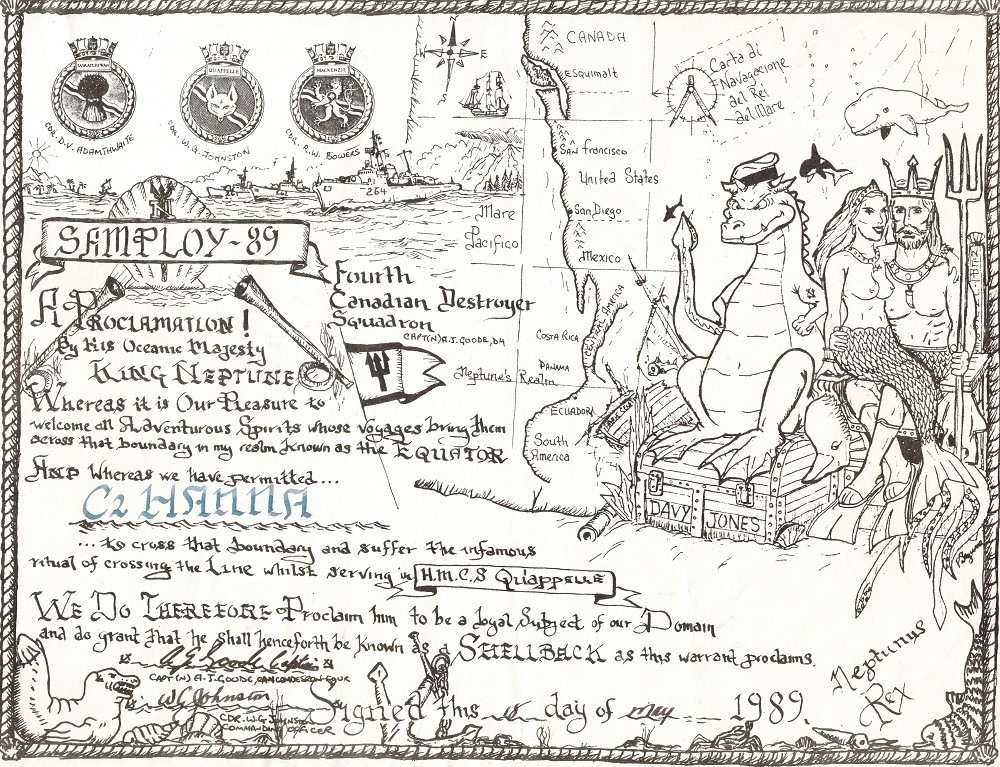 SASKATCHEWAN
QU'APPELLE
MACKENZIE
CDR. D.V. ADAMTHWAITE
CDR. W.G. JOHNSTON
CDR. R.W. BOWERS
264
N
W E
CANADA
ESQUIMALT
San Francisco
United States
San Diego
Mexico
Mare
Pacifico
Central America
COSTA RICA
PANAMA
Neptune's Realm
ECUADOR
South
America
Carta di
Navagazione
del Rei
del Mare
SAMPLOY-89
Fourth
Canadian Destroyer
Squadron
CAPT(N) A.J. GOODE, D4
A Proclamation!
By His Oceanic Majesty
King Neptune
Whereas it is Our Pleasure to
welcome all Adventurous Spirits whose voyages bring them
across that boundary in my realm known as the EQUATOR
And whereas we have permitted...
C2 HANNA
...to cross that boundary and suffer the infamous
ritual of crossing the Line whilst serving in H.M.C.S Qu'appelle
We Do Therefore Proclaim him to be a loyal Subject of our Domain
and do grant that he shall henceforth be known as a SHELLBACK as this warrant proclaims.
CAPT(N) A.J. GOODE,
W G Johnston
CDR. W.G JOHNSTON
COMMANDING OFFICER
Signed this day of may 1989.
DAVY JONES
Neptunus
Rex